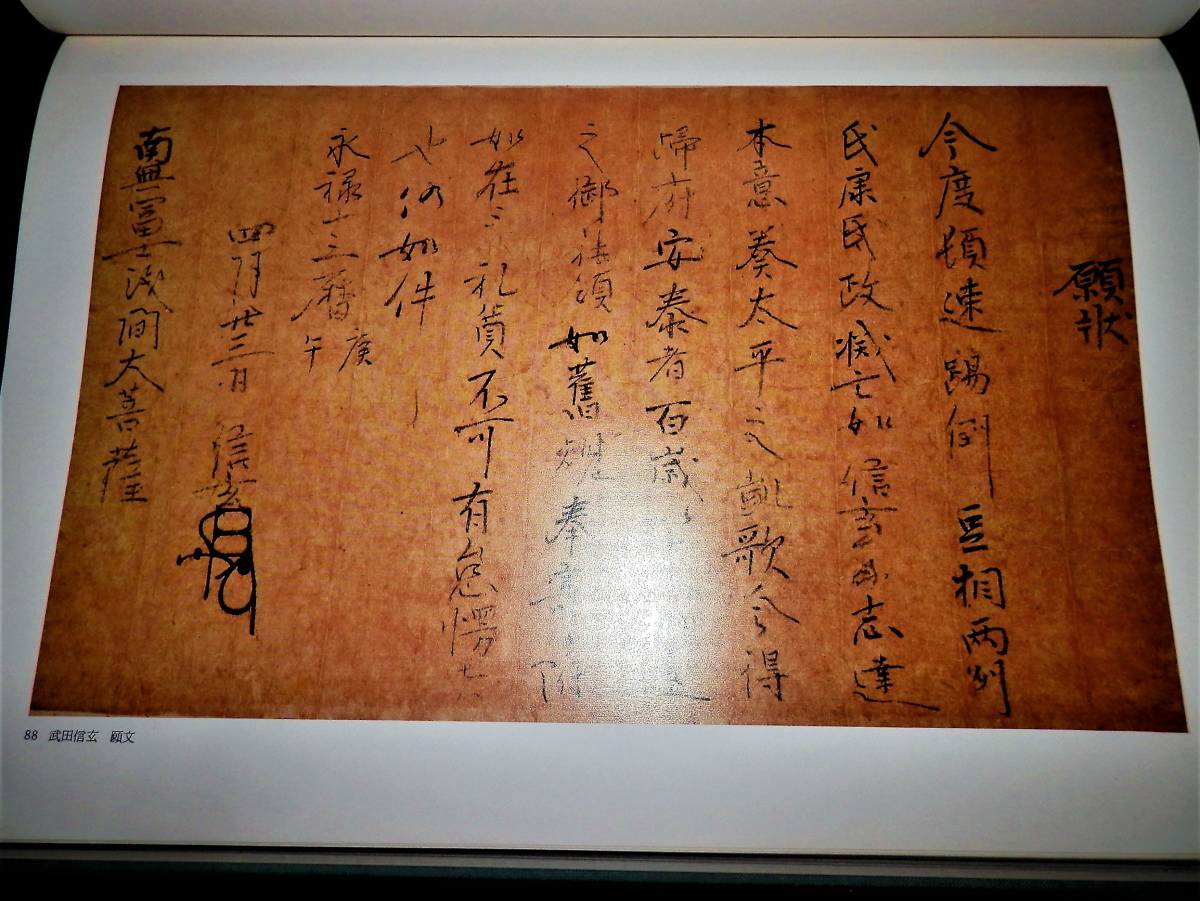 願状
今度頓速蹋倒豆相両州
氏康氏政滅亡如信玄存志達
本意奏太平之凱歌令得
帰府安泰者百歳
之御社領如舊規奉寄附
如在之礼奠不可有怠慢
也仍如件
永禄十三暦庚午
四月廿三日 信玄
南無富士浅間大菩薩
88 武田信玄 願文